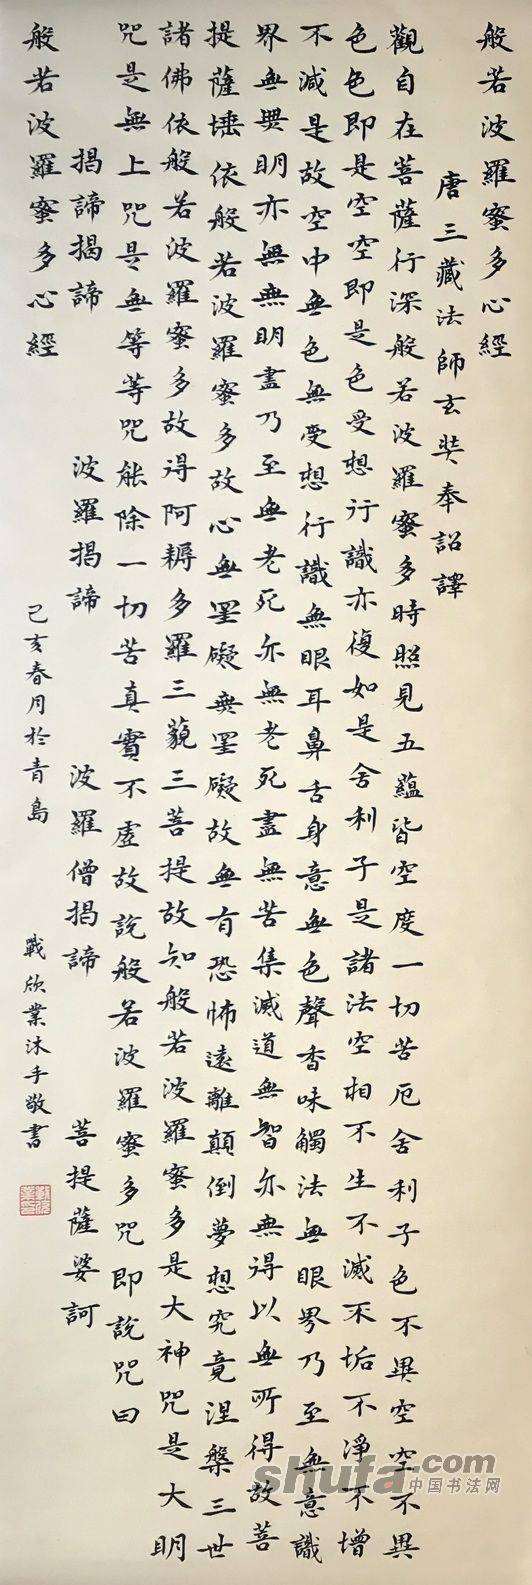 般若波羅蜜多心經
唐三藏法師玄奘奉詔譯
觀自在菩薩行深般若波羅蜜多時照見五蘊皆空度一切苦厄舍利子色不異空空不異
色色即是空空即是色受想行識亦復如是舍利子是諸法空相不生不滅不垢不淨不增
不減是故空中無色無受想行識無眼耳鼻舌身意無色聲香味觸法無眼界乃至無意識
界無無明亦無無明盡乃至無老死亦無老死盡無苦集滅道無智亦無得以無所得故菩
提薩埵依般若波羅蜜多故心無罣礙無罣礙故無有恐怖遠離顛倒夢想究竟涅槃三世
諸佛依般若波羅蜜多故得阿耨多羅三藐三菩提故知般若波羅蜜多是大神咒是大明
咒是無上咒是無等等咒能除一切苦真實不虛故說般若波羅蜜多咒即說咒曰
揭諦揭諦 波羅揭諦 波羅僧揭諦 菩提薩婆訶
般若波羅蜜多心經 己亥春月於青島 戰欣業沐手敬書
shufa.com
中国书法网